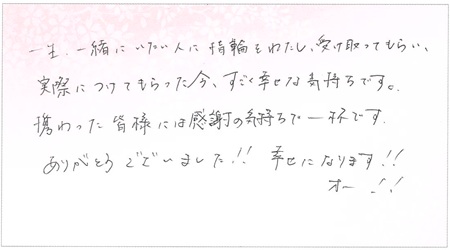 一生、一緒にいたい人に指輪をわたし、受け取ってもらい、
実際につけてもらった今、すごく幸せな気持ちです。
携わった皆様には感謝の気持ちで一杯です.
ありがとうございました!! 幸せになります!!
オー!!